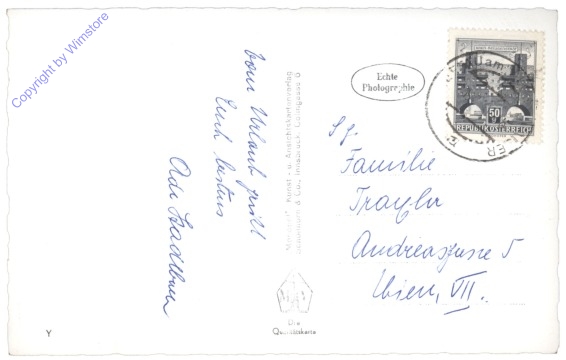 Copyright by Wimstore
Vom Urlaub grüßt
Euch bestens
Adi
Echte
Photographie
50
REPUBLIK ÖSTERREICH
Familie
Andreasgasse 5
Wien, VII.
Kunst - u. Ansichtskartenverlag
& Co., Innsbruck,
Die
Qualitätskarte
Y